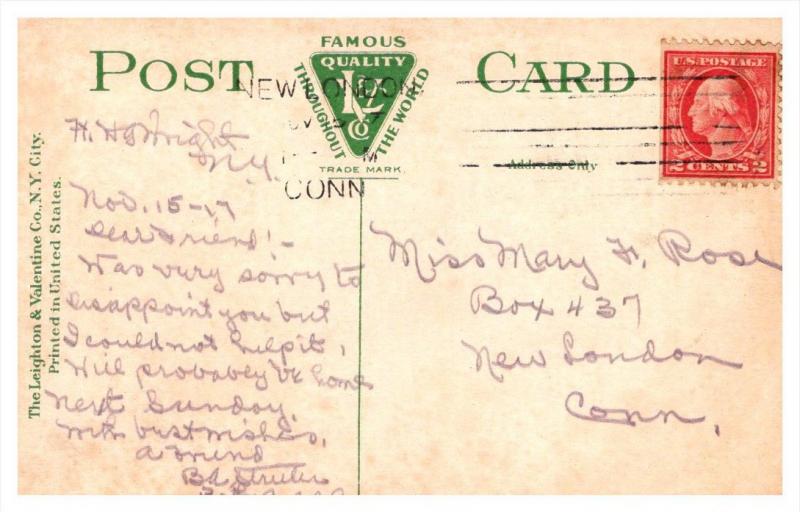 POST CARD
FAMOUS
QUALITY
L&V Co
THROUGHOUT THE WORLD
TRADE MARK.
NEW LONDON
CONN
U.S. POSTAGE
2 CENTS 2
Address Only
The Leighton & Valentine Co., N.Y. City.
Printed in United States.
Wright
N.Y.
Nov. 15-17
Dear Friend! -
Was very sorry to
disappoint you but
I could not help it,
Will probabey be home
next Sunday.
With best wishes,
a friend
Miss Mary F. Rose
Box 437
New London
Conn.